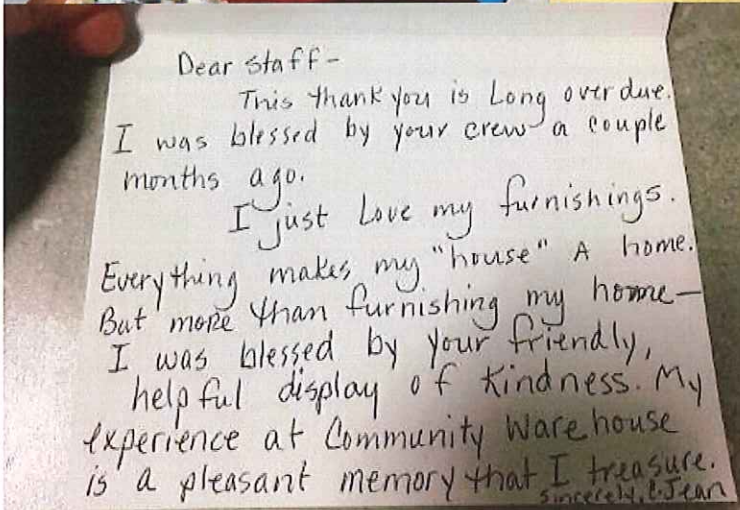 Dear Staff-
This thank you is Long over due.
I was blessed by your crew a couple
months ago.
I just Love my furnishings.
Everything makes my "house" A home.
But more than furnishing my home-
I was blessed by your friendly,
helpful display of kindness. My
experience at Community Warehouse
is a pleasant memory that I treasure.
Sincerely, Jean